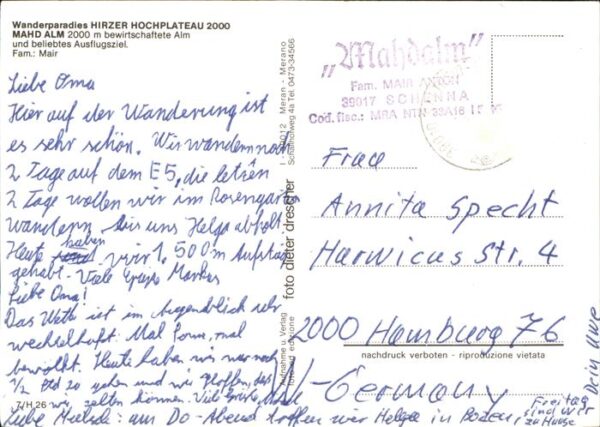 Wanderparadies HIRZER HOCHPLATEAU 2000
MAHD ALM 2000 m bewirtschaftete Alm
und beliebtes Ausflugsziel.
Fam.: Mair
Liebe Oma
Hier auf der Wanderung ist
es sehr schön. Wir wandern noch
2 Tage auf dem E5, die letzten
2 Tage wollen wir im Rosengarten
wandern bis uns Helga abholt.
Heute haben wir 1.500 m Aufstieg
gehabt. Viele Grüße Markus
Liebe Oma!
Das Wetter ist im Augenblick sehr
wechselhaft: Mal Sonne, mal
bewölkt. Heute haben wir nur noch
1/2 Std zu gehen und wir hoffen, daß
wir zelten können. Viele Grüße,
7/H 26
am Do-Abend treffen wir Helga in Bozen,
Freitag
sind wir
zu Hause
Dein Uwe
I - 39012 Meran - Merano
Schafferweg 4a Tel. 0473-34566
foto dieter drescher
Aufnahme u. Verlag
foto ed edizione
„Mahdalm"
Fam. MAIR
39017 SCHENNA
Cod. fisc.: MRA NTN 38A16
Frau
Annita Specht
Harwicus Str. 4
2000 Hamburg 76
nachdruck verboten - riproduzione vietata
W-Germany